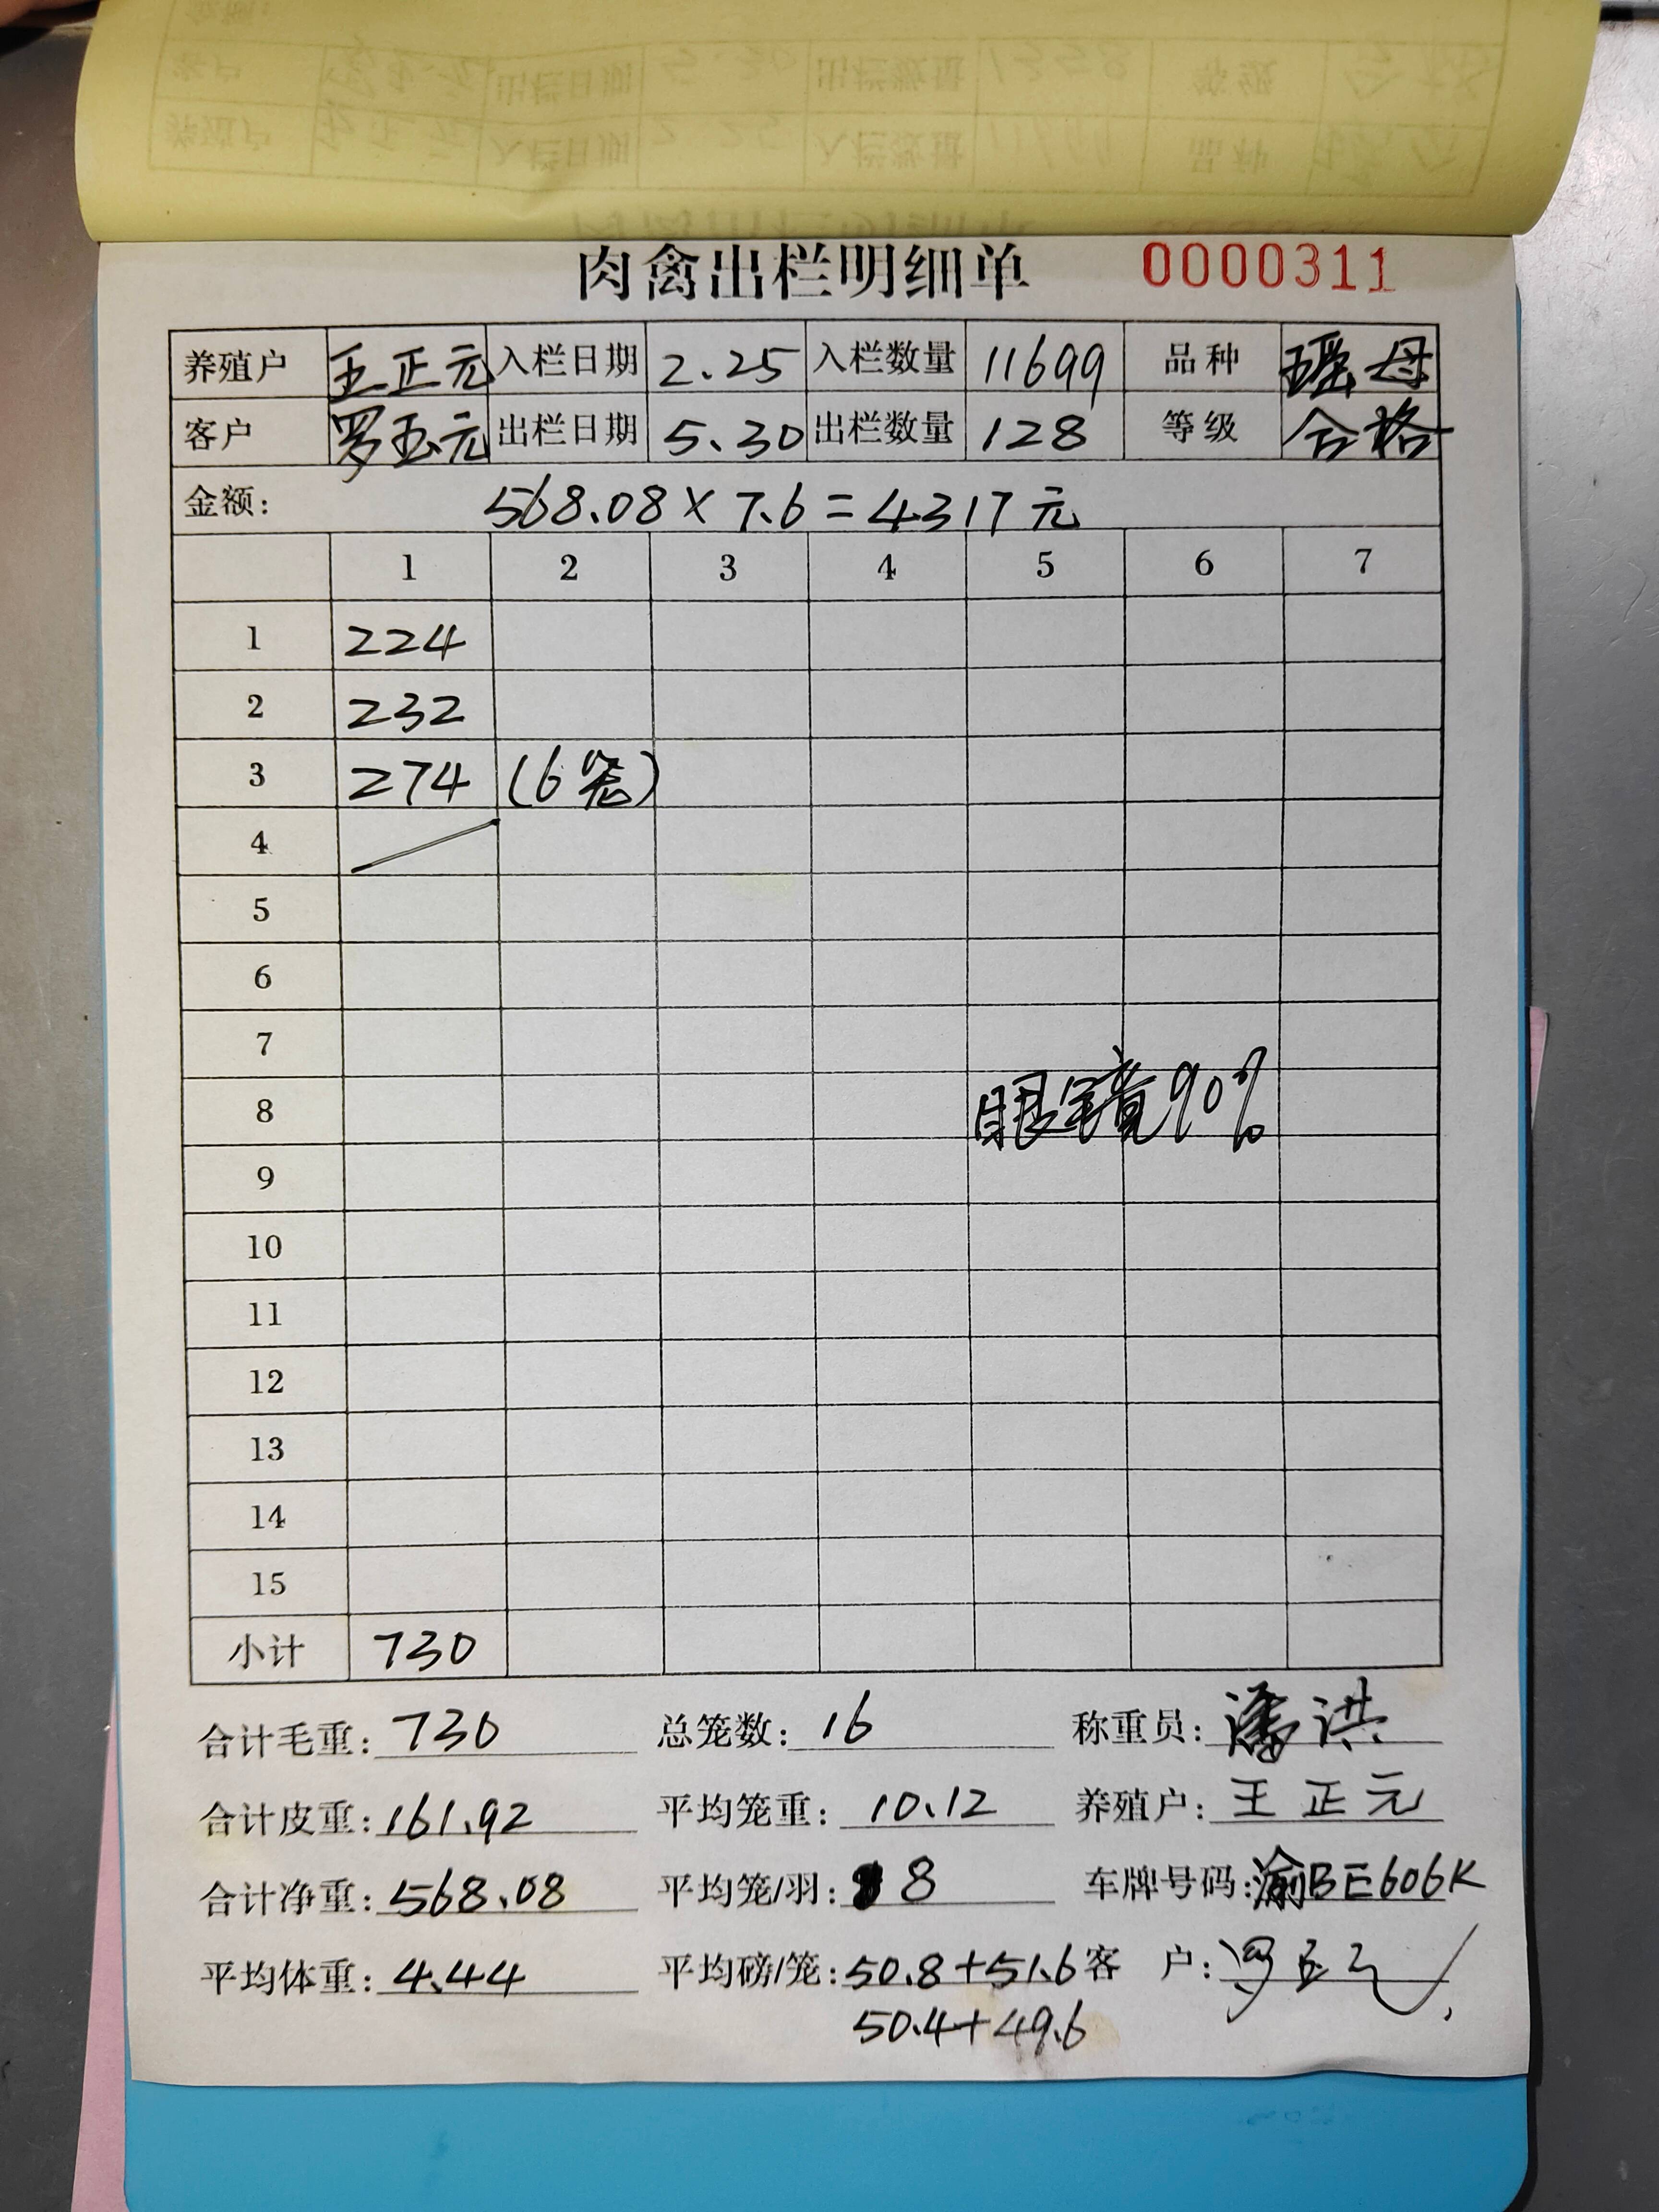 肉禽出栏明细单 0000311
养殖户 王正元 入栏日期 2.25 入栏数量 11699 品种 瑶母
客户 罗玉元 出栏日期 5.30 出栏数量 128 等级 合格
金额: 568.08×7.6=4317元
1 2 3 4 5 6 7
1 224
2 232
3 274 (6笼)
4
5
6
7
8 眼镜90%
9
10
11
12
13
14
15
小计 730
合计毛重: 730 总笼数: 16 称重员: 潘洪
合计皮重: 161.92 平均笼重: 10.12 养殖户: 王正元
合计净重: 568.08 平均笼/羽: 8 车牌号码: 渝BE606K
平均体重: 4.44 平均磅/笼: 50.8+51.6 客 户: 罗玉元
50.4+49.6